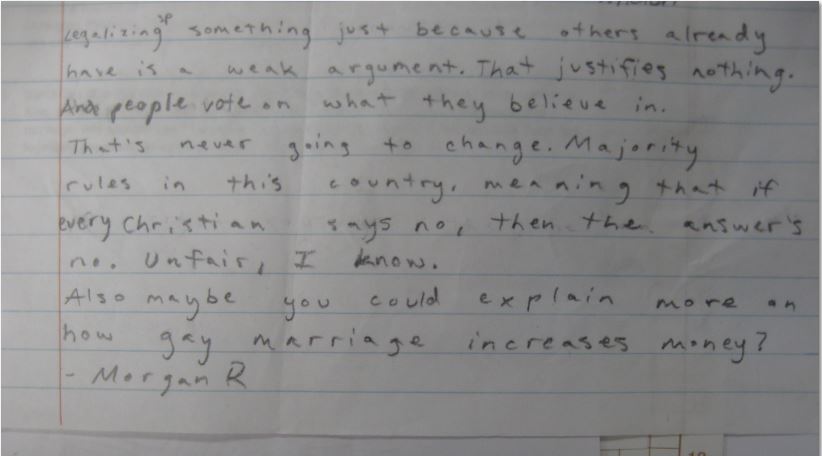 Legalizing sp something just because others already
have is a weak argument. That justifies nothing.
And people vote on what they believe in.
That's never going to change. Majority
rules in this country, meaning that if
every Christian says no, then the answer's
no. Unfair, I know.
Also maybe you could explain more on
how gay marriage increases money?
- Morgan R